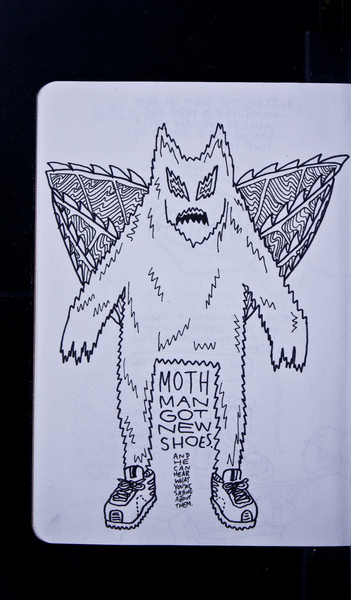 MOTH
MAN
GOT
NEW
SHOES
AND
HE
CAN
HEAR
WHAT
YOU'RE
SAYING
ABOUT
THEM.